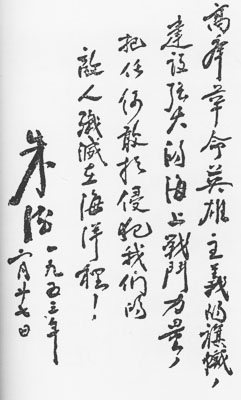 高举革命英雄主义的旗帜,
建设强大的海上战鬥力量,
把任何敢於侵犯我们的
敌人殲滅在海洋裡!
朱德
一九五三年
八月廿七日